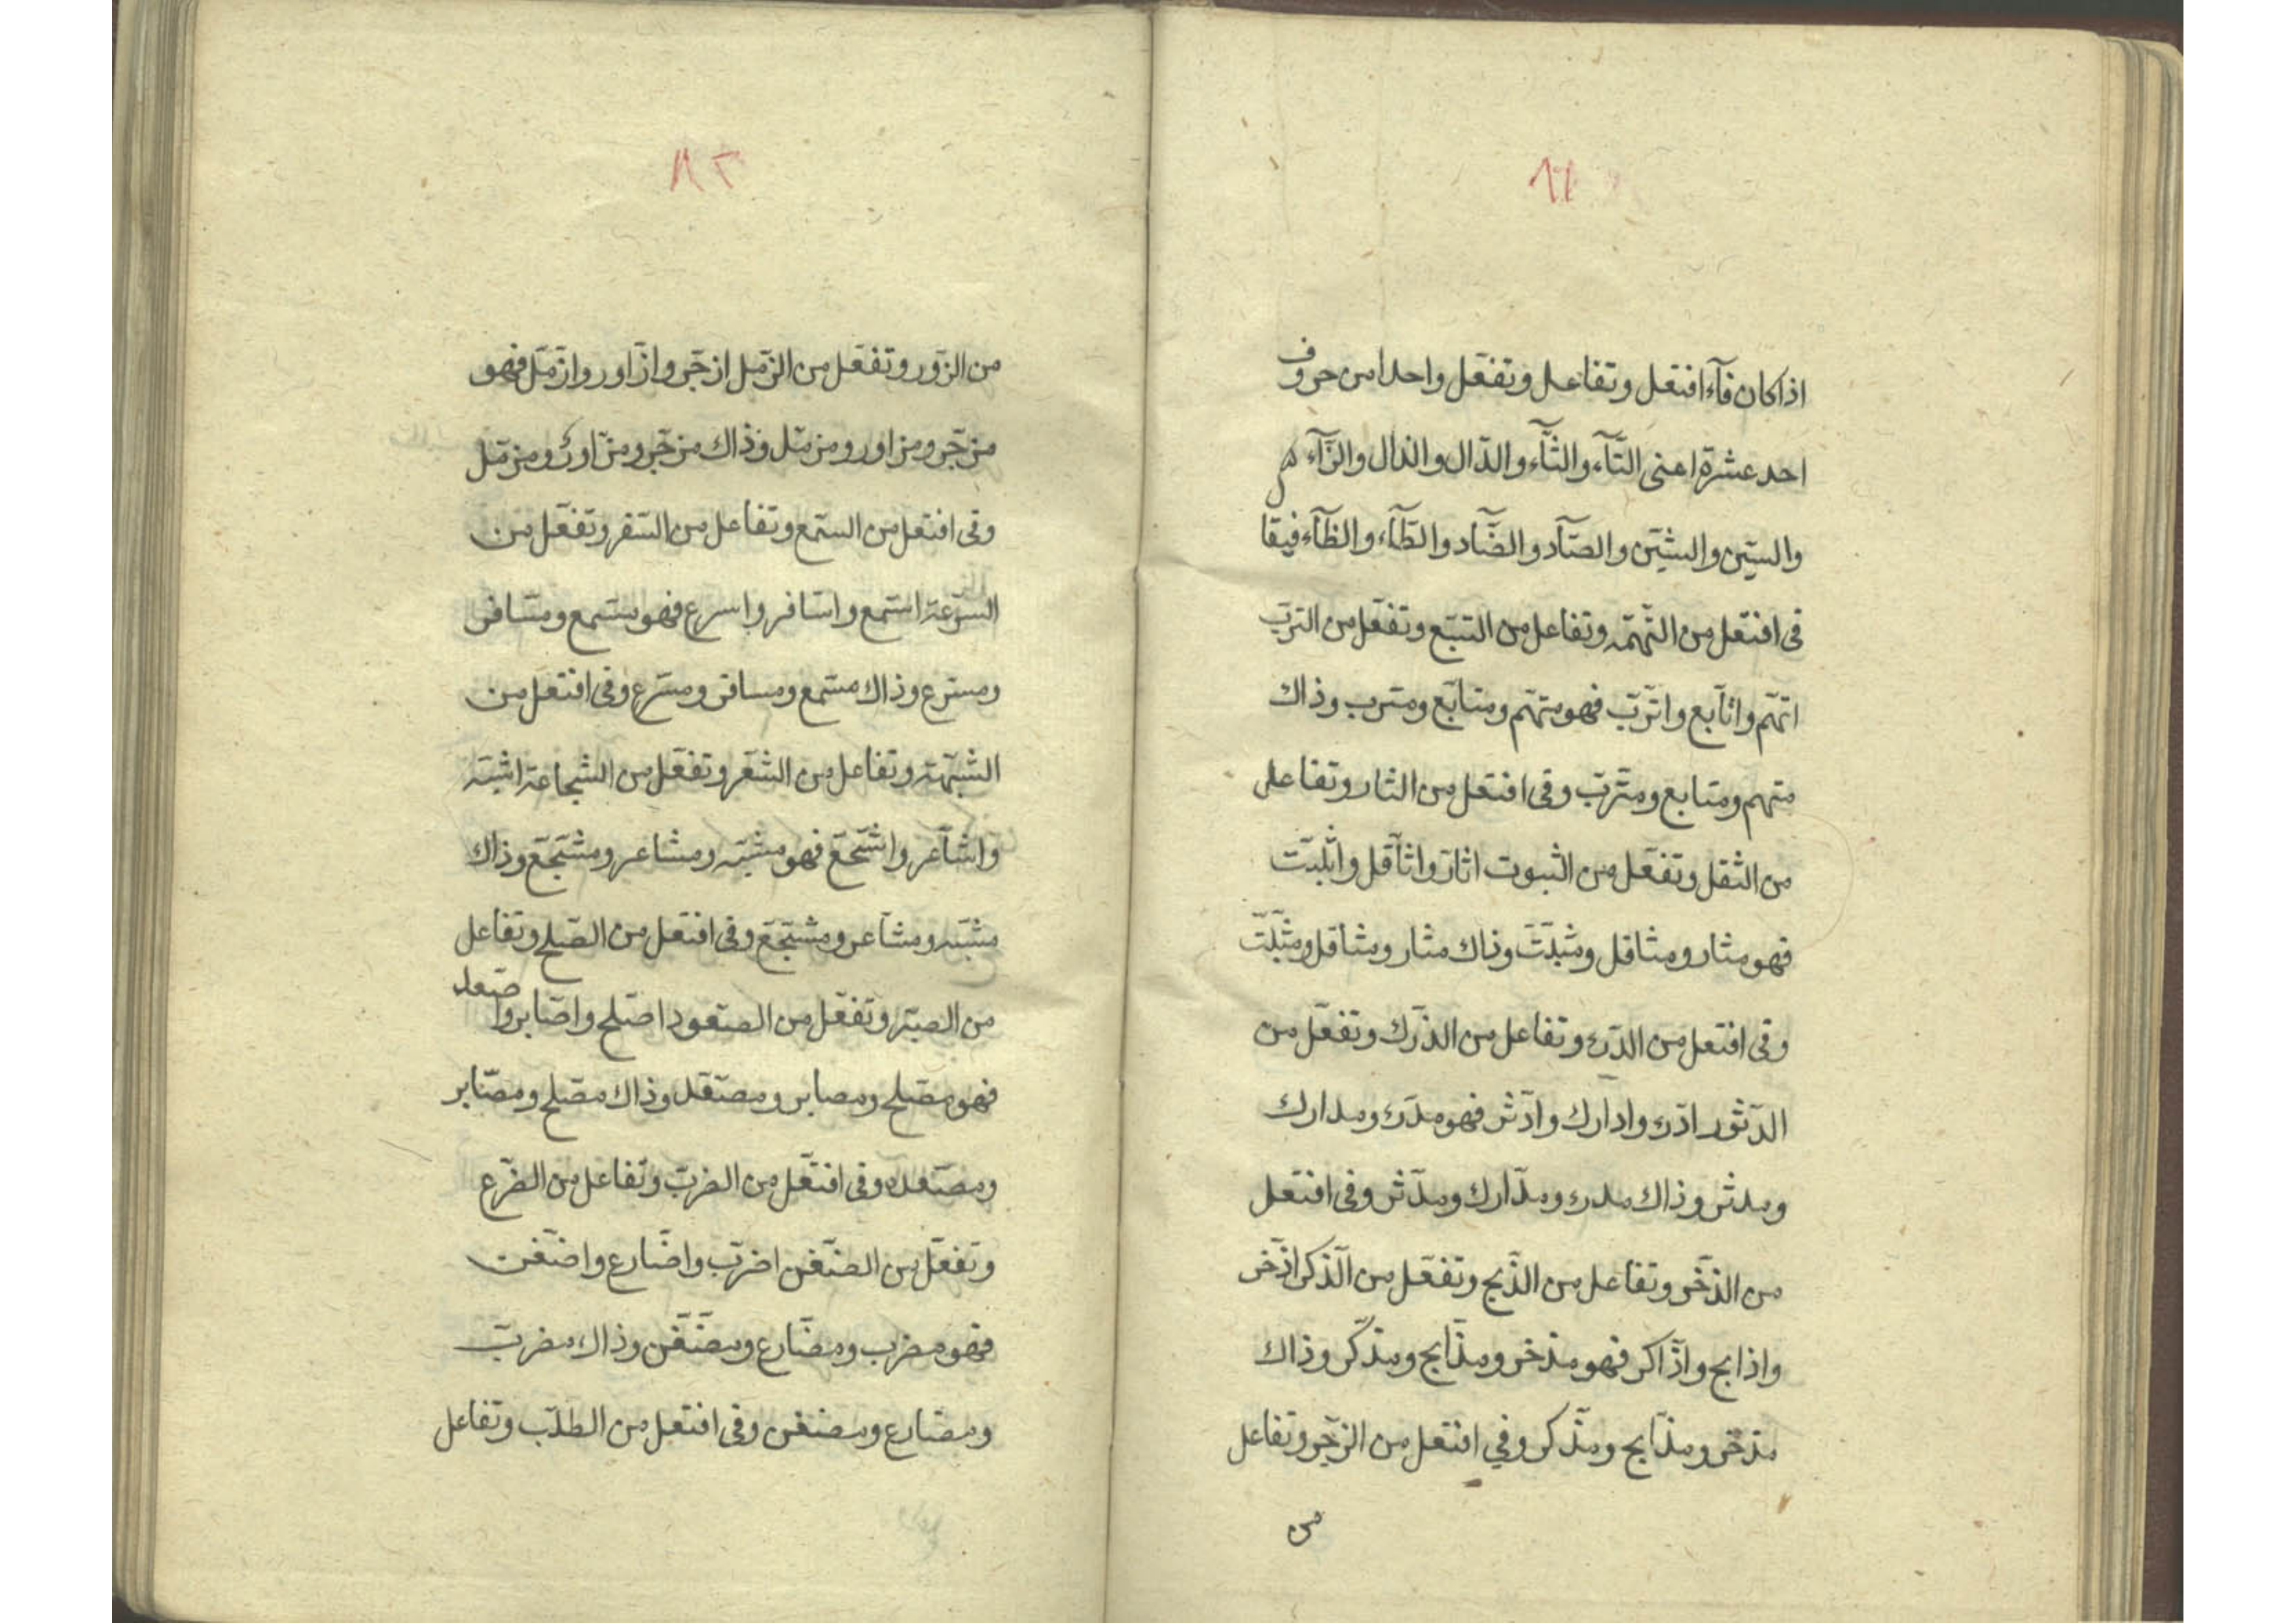 ٨١
اذا كان فآء افتعل وتفاعل وتفعّل واحدا من حروف
احد عشرة اعنى التّآء والثّآء والدّال والذال والزّآء
والسّين والشّين والصّآد والضّآد والطّآء والظّآء فيقا
فى افتعل من التّهمّه وتفاعل من التبّع وتفعّل من التربّ
اتهّم واتّابع واترّبّ فهو متهّم ومتابّع ومترب وذاك
متهم ومتابع ومترّبّ وفى افتعل من الثار وتفاعل
من الثقل وتفعّل من الثبوت اثارّ واثّاقل واثّلبّت
فهو مثار ومثاقل ومثبّتّ وذاك مثار ومثاقل ومثبّتّ
وفى افتعل من الدّرء وتفاعل من الدّرك وتفعّل من
الدّثور ادّرء وادّارك وادّثر فهو مدّرء ومدارك
ومدثر وذاك مدرء ومدّارك ومدّثر وفى افتعل
من الذخّر وتفاعل من الذّبح وتفعّل من الذّكر اذّخر
واذابح واذّاكر فهو مذخر ومذّابح ومذّكر وذاك
مذخّر ومذّابح ومذّكر وفي افتعل من الزّجّر وتفاعل
من
٨٢
من الزّور وتفعّل من الزّمل ازجّر وازّاور وازّمّل فهو
مزجّر ومزاور ومزمّل وذاك مزجّر ومزّاور ومزمّل
وفى افتعل من السمّع وتفاعل من السّفر وتفعّل من
السّرعة استمع واسّافر واسرع فهو مستمع ومسّافر
ومسّرع وذاك مستمع ومسافر ومسّرع وفى افتعل من
الشبّهة وتفاعل من الشعّر وتفعّل من الشجاعة اشبّه
واشّآعر واشّجّع فهو مشبّه ومشاعر ومشّجّع وذاك
مشبّه ومشّاعر ومشّجّع وفى افتعل من الصّلح وتفاعل
من الصبّر وتفعّل من الصّعود اصّلح واصّابر واصّعد
فهو مصّلح ومصابر ومصّعد وذاك مصّلح ومصّابر
ومصّعد وفى افتعّل من الضربّ وتفاعل من الضّرع
وتفعّل من الضّغن اضربّ واضّارع واضّغن
فهو مضرب ومضّارع ومضّغّن وذاك مضربّ
ومضّارع ومضغن وفى افتعل من الطلبّ وتفاعل